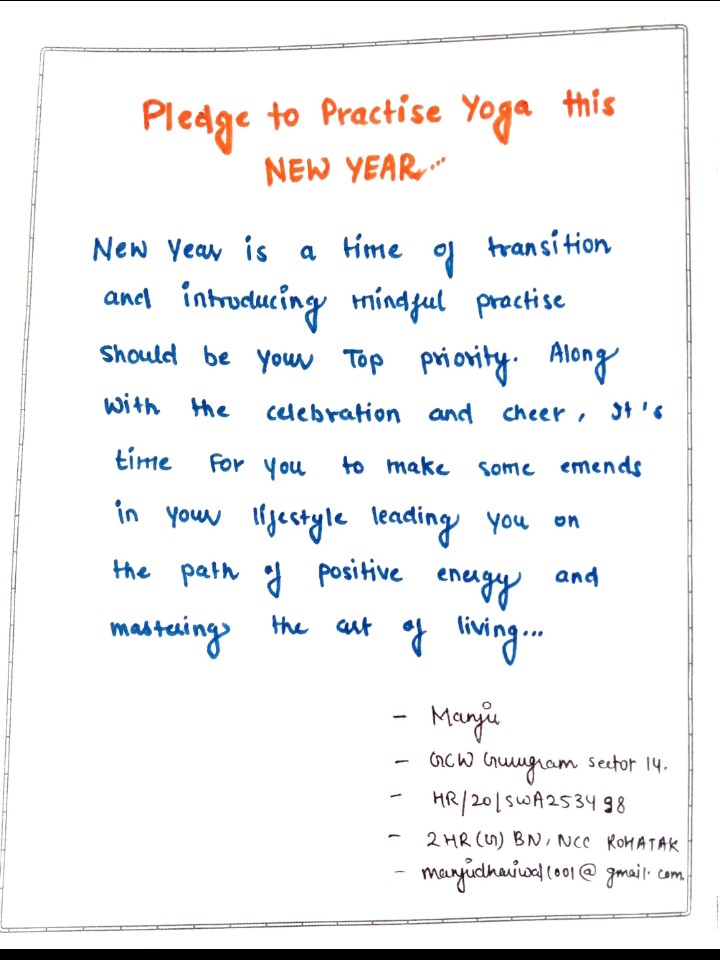 Pledge to Practise Yoga this
NEW YEAR...
New Year is a time of transition
and introducing mindful practise
should be your Top priority. Along
with the celebration and cheer, It's
time For you to make some emends
in your lifestyle leading you on
the path of positive energy and
mastering the art of living...
- Manju
- GCW Gurugram sector 14.
- HR/20/SWA253498
- 2HR(G) BN, NCC ROHATAK
- manjudhariwal1001@gmail.com